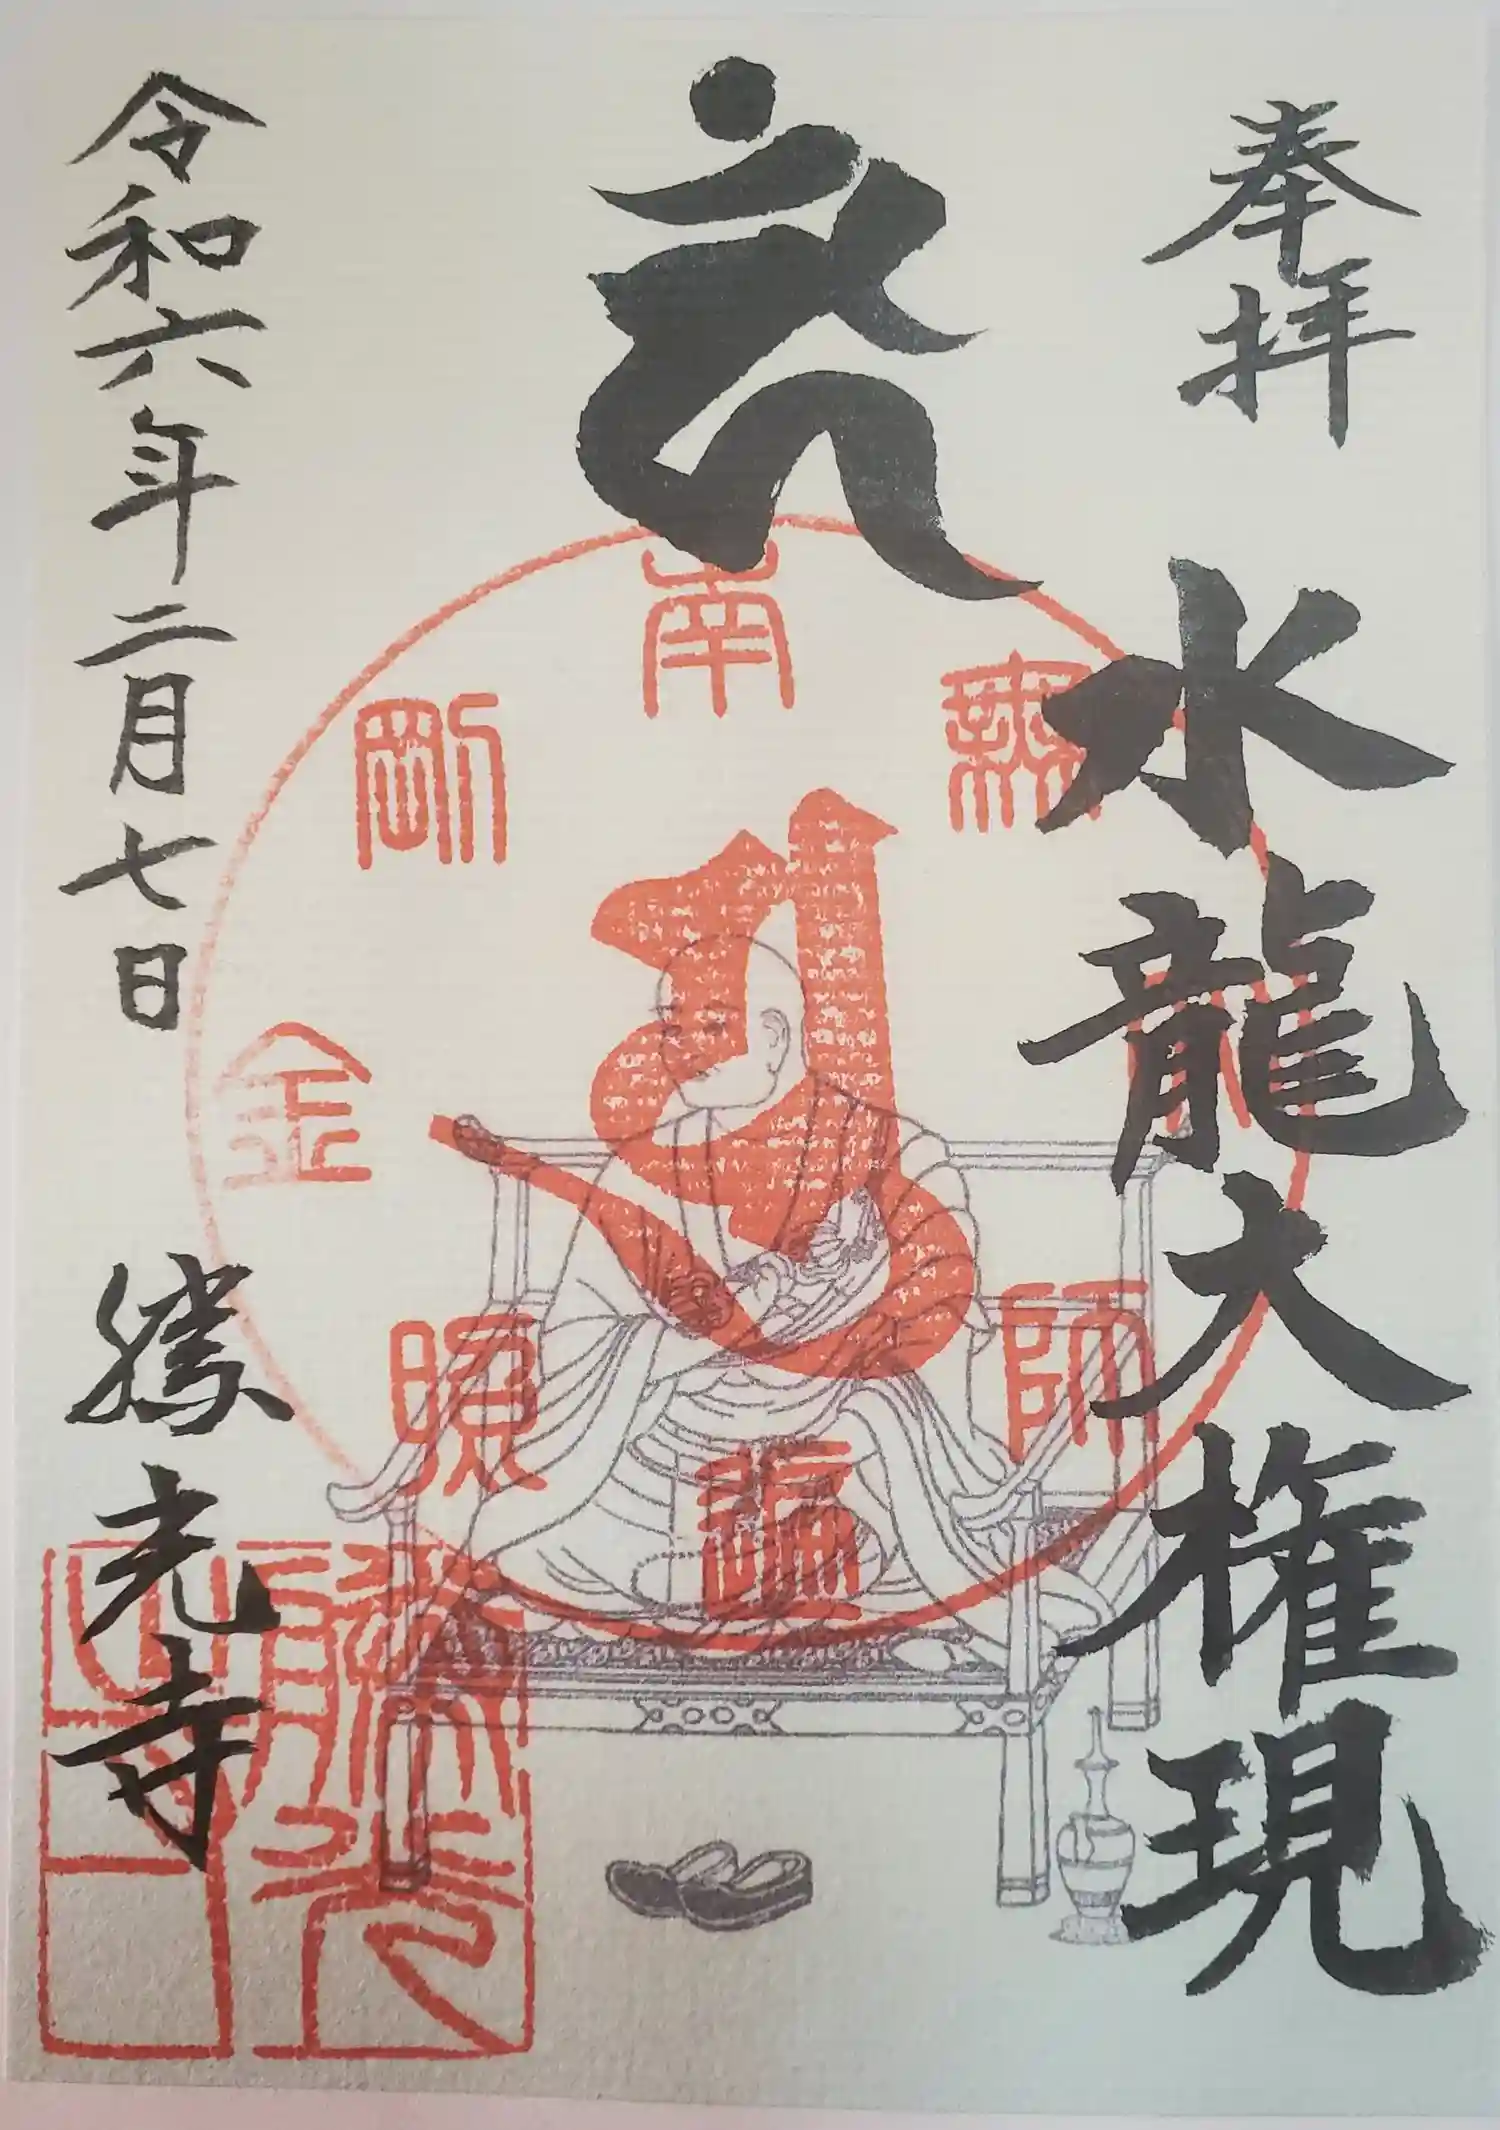 奉拝
水龍大権現
南無大師遍照金剛
令和六年二月七日
勝光寺